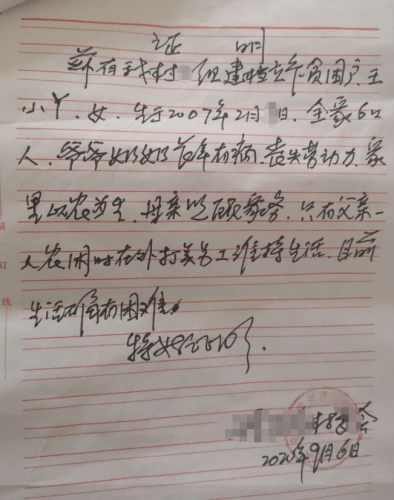 证 明
兹有我村 组建档立卡贫困户王
小丫,女,生于2007年2月 日,全家6口
人,爷爷奶奶常年有病,丧失劳动力,家
里以农为生,母亲以 家务,只有父亲一
人农闲时在外打 工维持生活,目前
生活确有困难。
特此
村委会
2020年9月6日